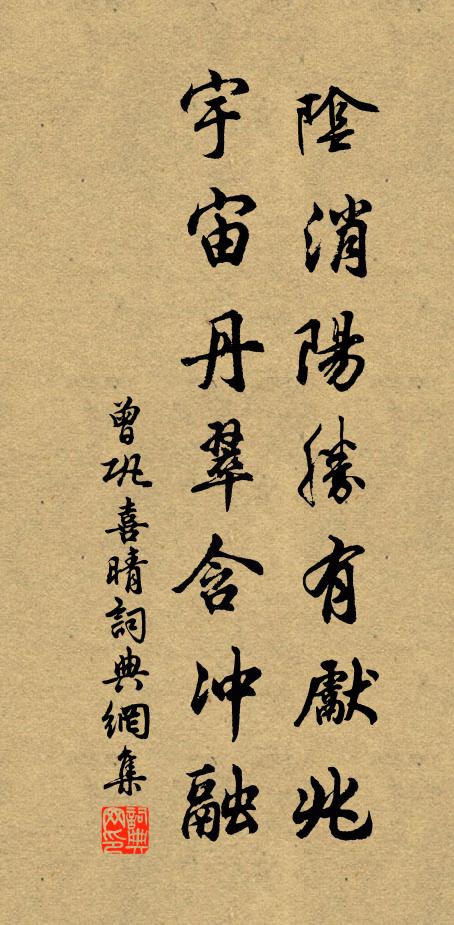 陰消陽勝有獻兆
宇宙丹翠含沖融
曾鞏喜晴詞典網集
詞典網印